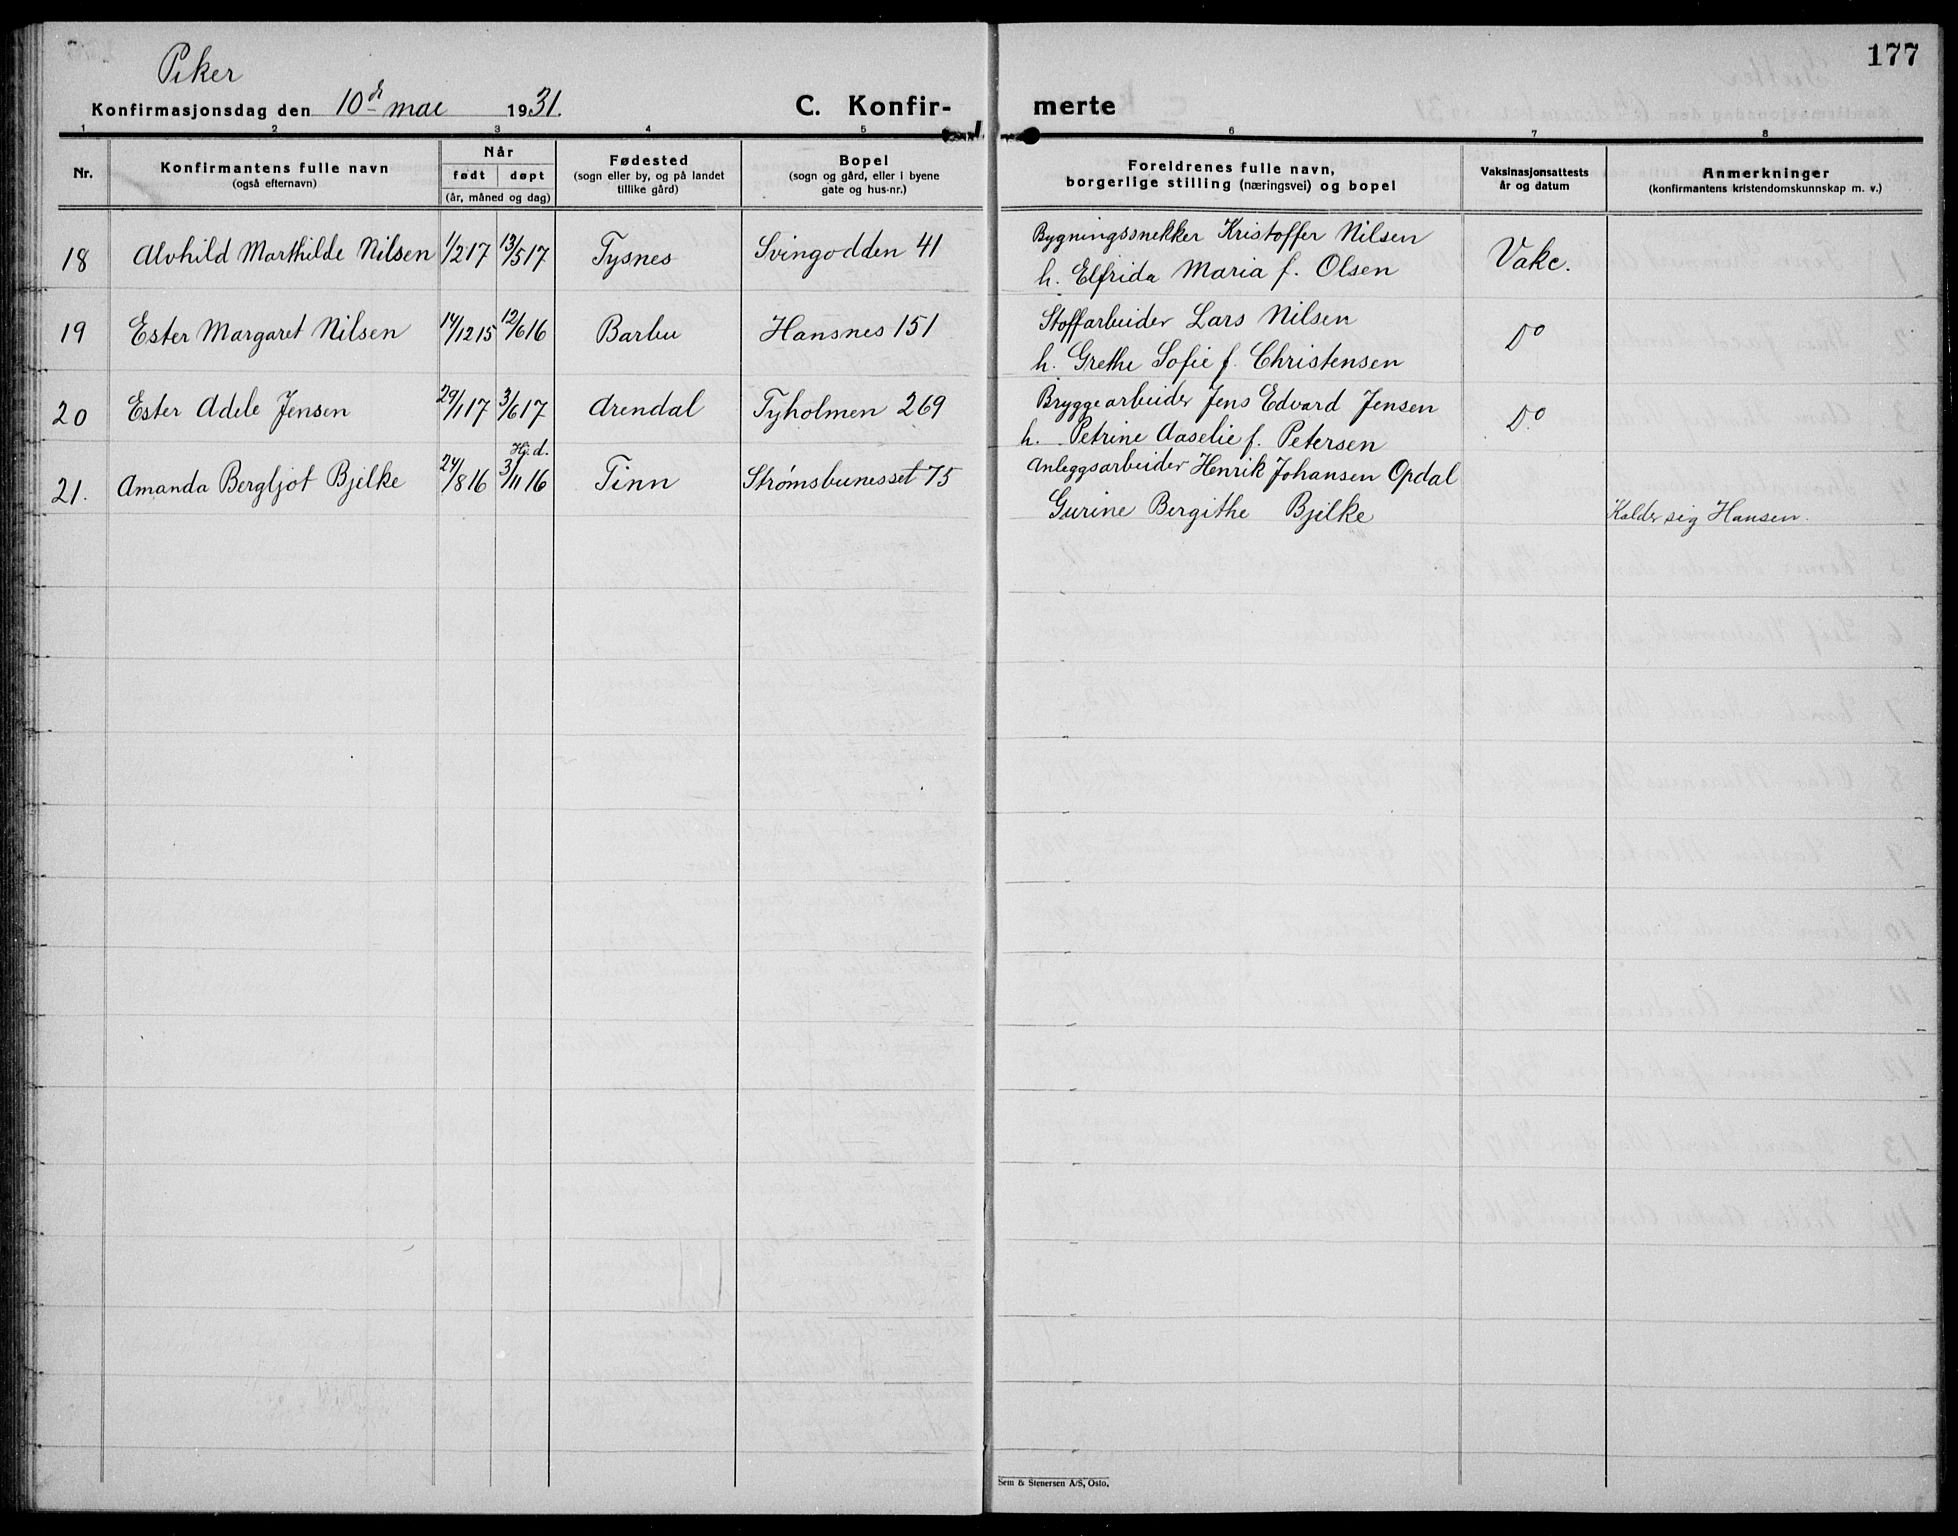 177
Piker
Konfirmasjonsdag den 10de mai 1931.
C. Konfir- merte
1 2 3 4 5 6 7 8
Nr.
Konfirmantens fulle navn
(også efternavn)
Når
født døpt
(år, måned og dag)
Fødested
(sogn eller by, og på landet
tillike gård)
Bopel
(sogn og gård, eller i byene
gate og hus-nr.)
Foreldrenes fulle navn,
borgerlige stilling (næringsvei) og bopel
Vaksinasjonsattests
år og datum
Anmerkninger
(konfirmantens kristendomskunnskap m. v.)
18 Alvhild Marthilde Nilsen 1/2 17 13/5 17 Tysnes Svingodden 41 Bygningssnekker Kristoffer Nilsen Vakc.
h. Elfrida Maria f. Olsen
19 Ester Margaret Nilsen 14/12 15 12/6 16 Barbu Hansnes 151 Stoffarbeider Lars Nilsen Do
h. Grethe Sofie f. Christensen
20 Ester Adele Jensen 29/1 17 3/6 17 Arendal Tyholmen 269 Bryggearbeider Jens Edvard Jensen Do
h. Petrine Aaselie f. Petersen
Hj. d.
21. Amanda Bergljot Bjelke 24/8 16 3/11 16 Tinn Strømsbunesset 75 Anleggsarbeider Henrik Johansen Opdal
Gurine Bergithe Bjelke Kalder sig Hansen.
Sem & Stenersen A/S, Oslo.